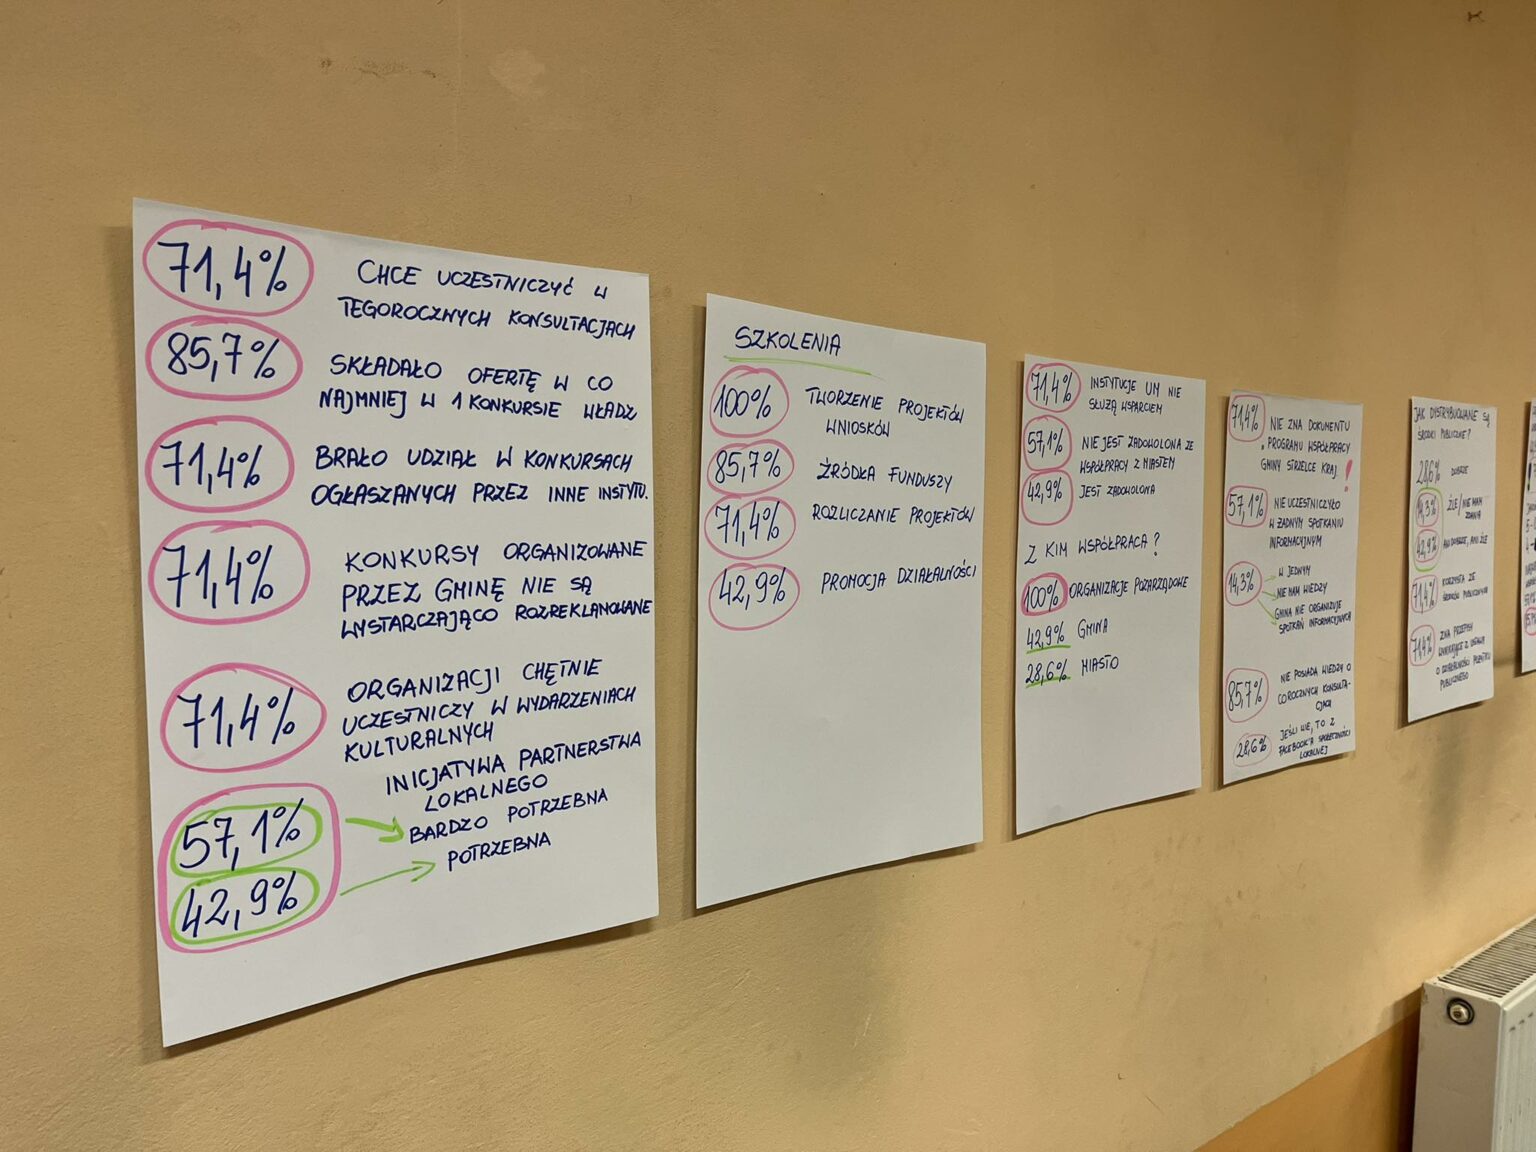 71,4% CHCE UCZESTNICZYĆ W
TEGOROCZNYCH KONSULTACJACH
85,7% SKŁADAŁO OFERTĘ W CO
NAJMNIEJ W 1 KONKURSIE WŁADZ
71,4% BRAŁO UDZIAŁ W KONKURSACH
OGŁASZANYCH PRZEZ INNE INSTYTU.
71,4% KONKURSY ORGANIZOWANE
PRZEZ GMINĘ NIE SĄ
WYSTARCZAJĄCO ROZREKLAMOWANE
71,4% ORGANIZACJI CHĘTNIE
UCZESTNICZY W WYDARZENIACH
KULTURALNYCH
INICJATYWA PARTNERSTWA
LOKALNEGO
57,1% BARDZO POTRZEBNA
42,9% POTRZEBNA
SZKOLENIA
100% TWORZENIE PROJEKTÓW
WNIOSKÓW
85,7% ŹRÓDŁA FUNDUSZY
71,4% ROZLICZANIE PROJEKTÓW
42,9% PROMOCJA DZIAŁALNOŚCI
71,4% INSTYTUCJE UM NIE
SŁUŻĄ WSPARCIEM
57,1% NIE JEST ZADOWOLONA ZE
WSPÓŁPRACY Z MIASTEM
42,9% JEST ZADOWOLONA
Z KIM WSPÓŁPRACA?
100% ORGANIZACJE POZARZĄDOWE
42,9% GMINA
28,6% MIASTO
71,4% NIE ZNA DOKUMENTU
PROGRAMU WSPÓŁPRACY
GMINY STRZELCE KRAJ. !
57,1% NIE UCZESTNICZYŁO
W ŻADNYM SPOTKANIU
INFORMACYJNYM
14,3% W JEDNYM
NIE MAM WIEDZY
GMINA NIE ORGANIZUJE
SPOTKAŃ INFORMACYJNYCH
85,7% NIE POSIADA WIEDZY O
COROCZNYCH KONSULTA-
CJACH
28,6% JEŚLI WIE, TO Z
FACEBOOK'A SPOŁECZNOŚCI
LOKALNEJ
JAK DYSTRYBUOWANE SĄ
ŚRODKI PUBLICZNE?
28,6% DOBRZE
14,3% ŹLE / NIE MAM
ZDANIA
42,9% ANI DOBRZE, ANI ŹLE
71,4% KORZYSTA ZE
ŚRODKÓW PUBLICZNYCH
71,4% ZNA PRZEPISY
WYNIKAJĄCE Z USTAWY
O DZIAŁALNOŚCI POŻYTKU
PUBLICZNEGO